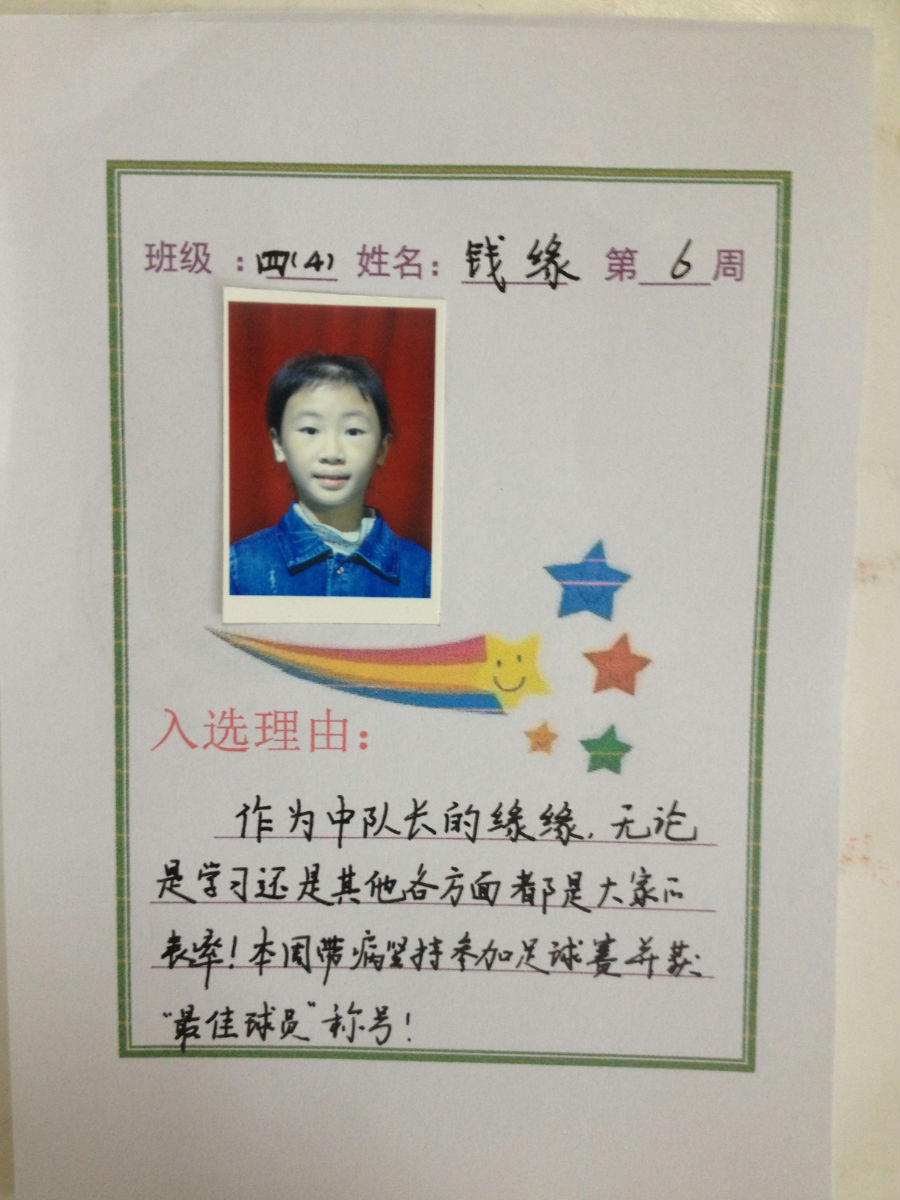 班级：四(4) 姓名：钱缘 第6周
入选理由：
作为中队长的缘缘，无论
是学习还是其他各方面都是大家的
表率！本周带病坚持参加足球赛并获
“最佳球员”称号！